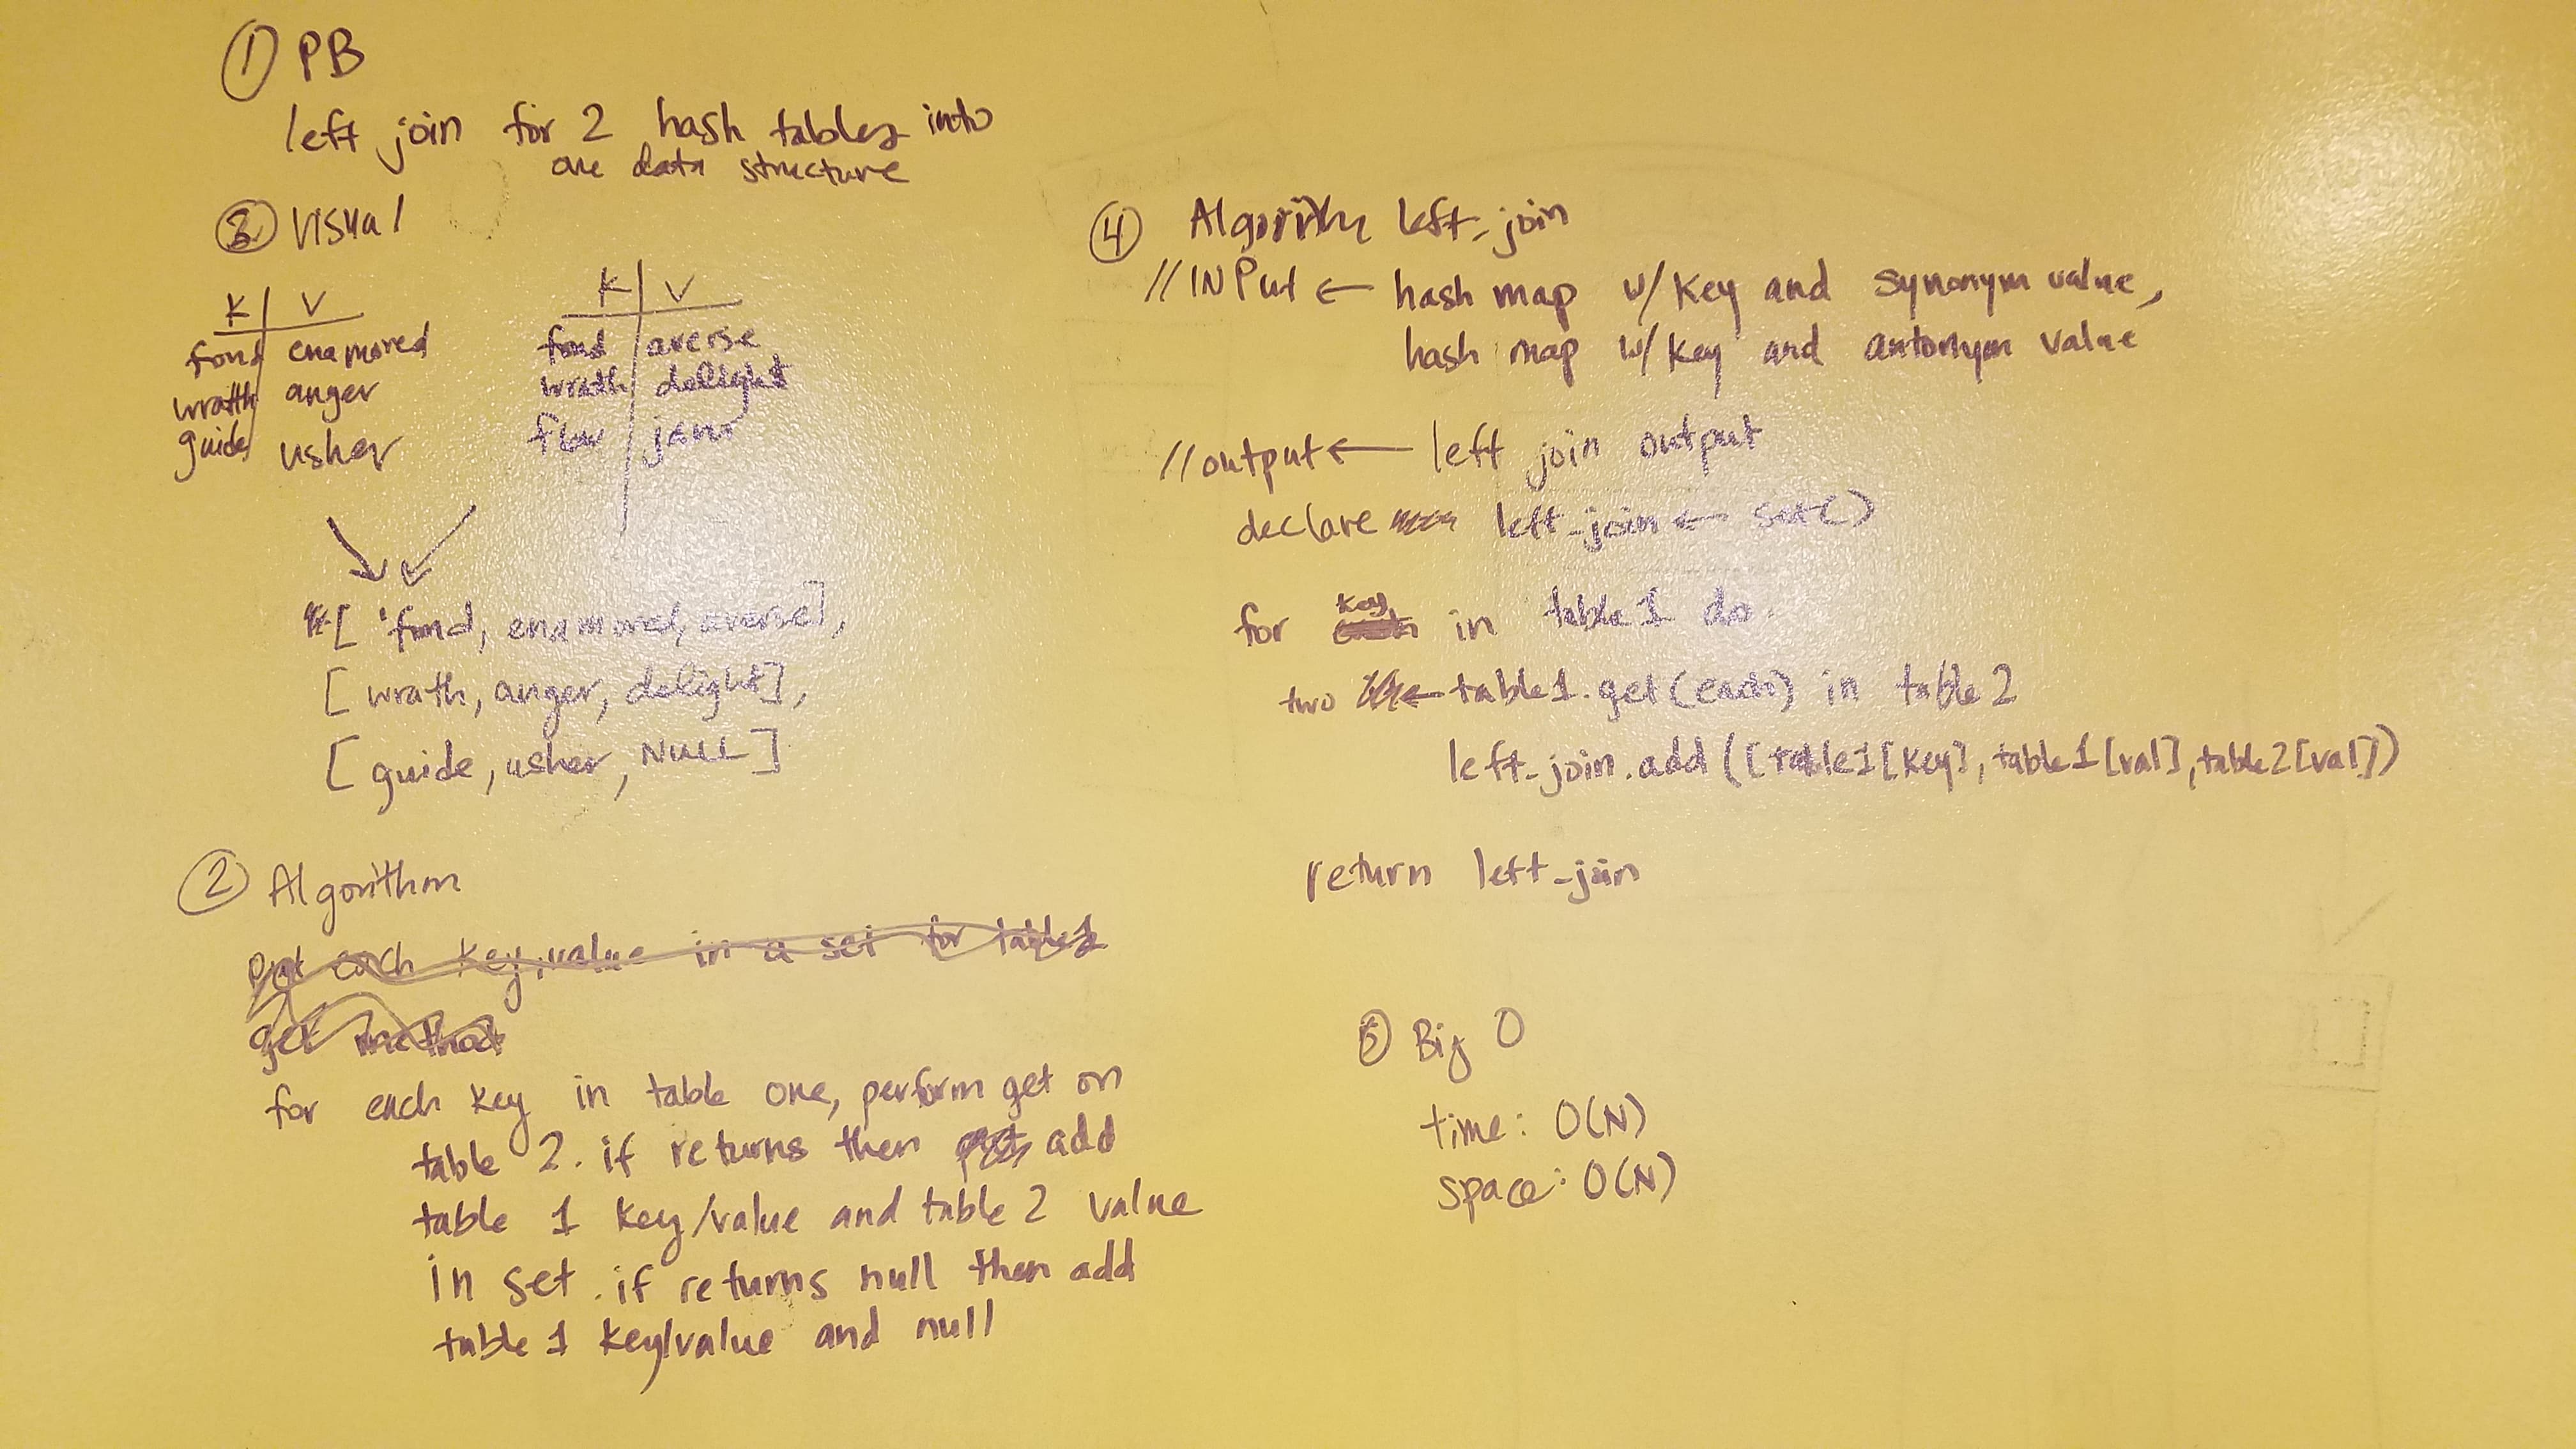 ① PB
left join for 2 hash tables into
one data structure
③ Visual
K | V
fond enamored
wrath anger
guide usher
K | V
fond averse
wrath delight
flow jam
[ 'fond, enamored, averse],
[ wrath, anger, delight],
[ guide, usher, NULL ]
② Algorithm
put each key, value in a set for table 1
get method
for each key in table one, perform get on
table 2. if returns then add
table 1 key/value and table 2 value
in set. if returns null then add
table 1 key/value and null
④ Algorithm left_join
// INPut ← hash map w/ key and synonym value,
hash map w/ key and antonym value
// output ← left join output
declare left_join ← set()
for key in table 1 do.
two ← table1.get(each) in table 2
left_join.add([table1[key], table1[val], table2[val])
return left_join
⑤ Big O
time: O(N)
space: O(N)